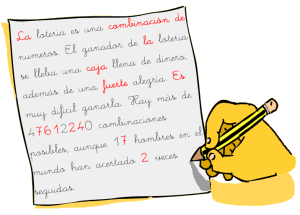 La lotería es una combinación de
números. El ganador de la lotería
se lleba una caja llena de dinero,
además de una fuerte alegría. Es
muy difícil ganarla. Hay más de
47612240 combinaciones
posibles, aunque 17 hombres en el
mundo han acertado 2 veces
seguidas.